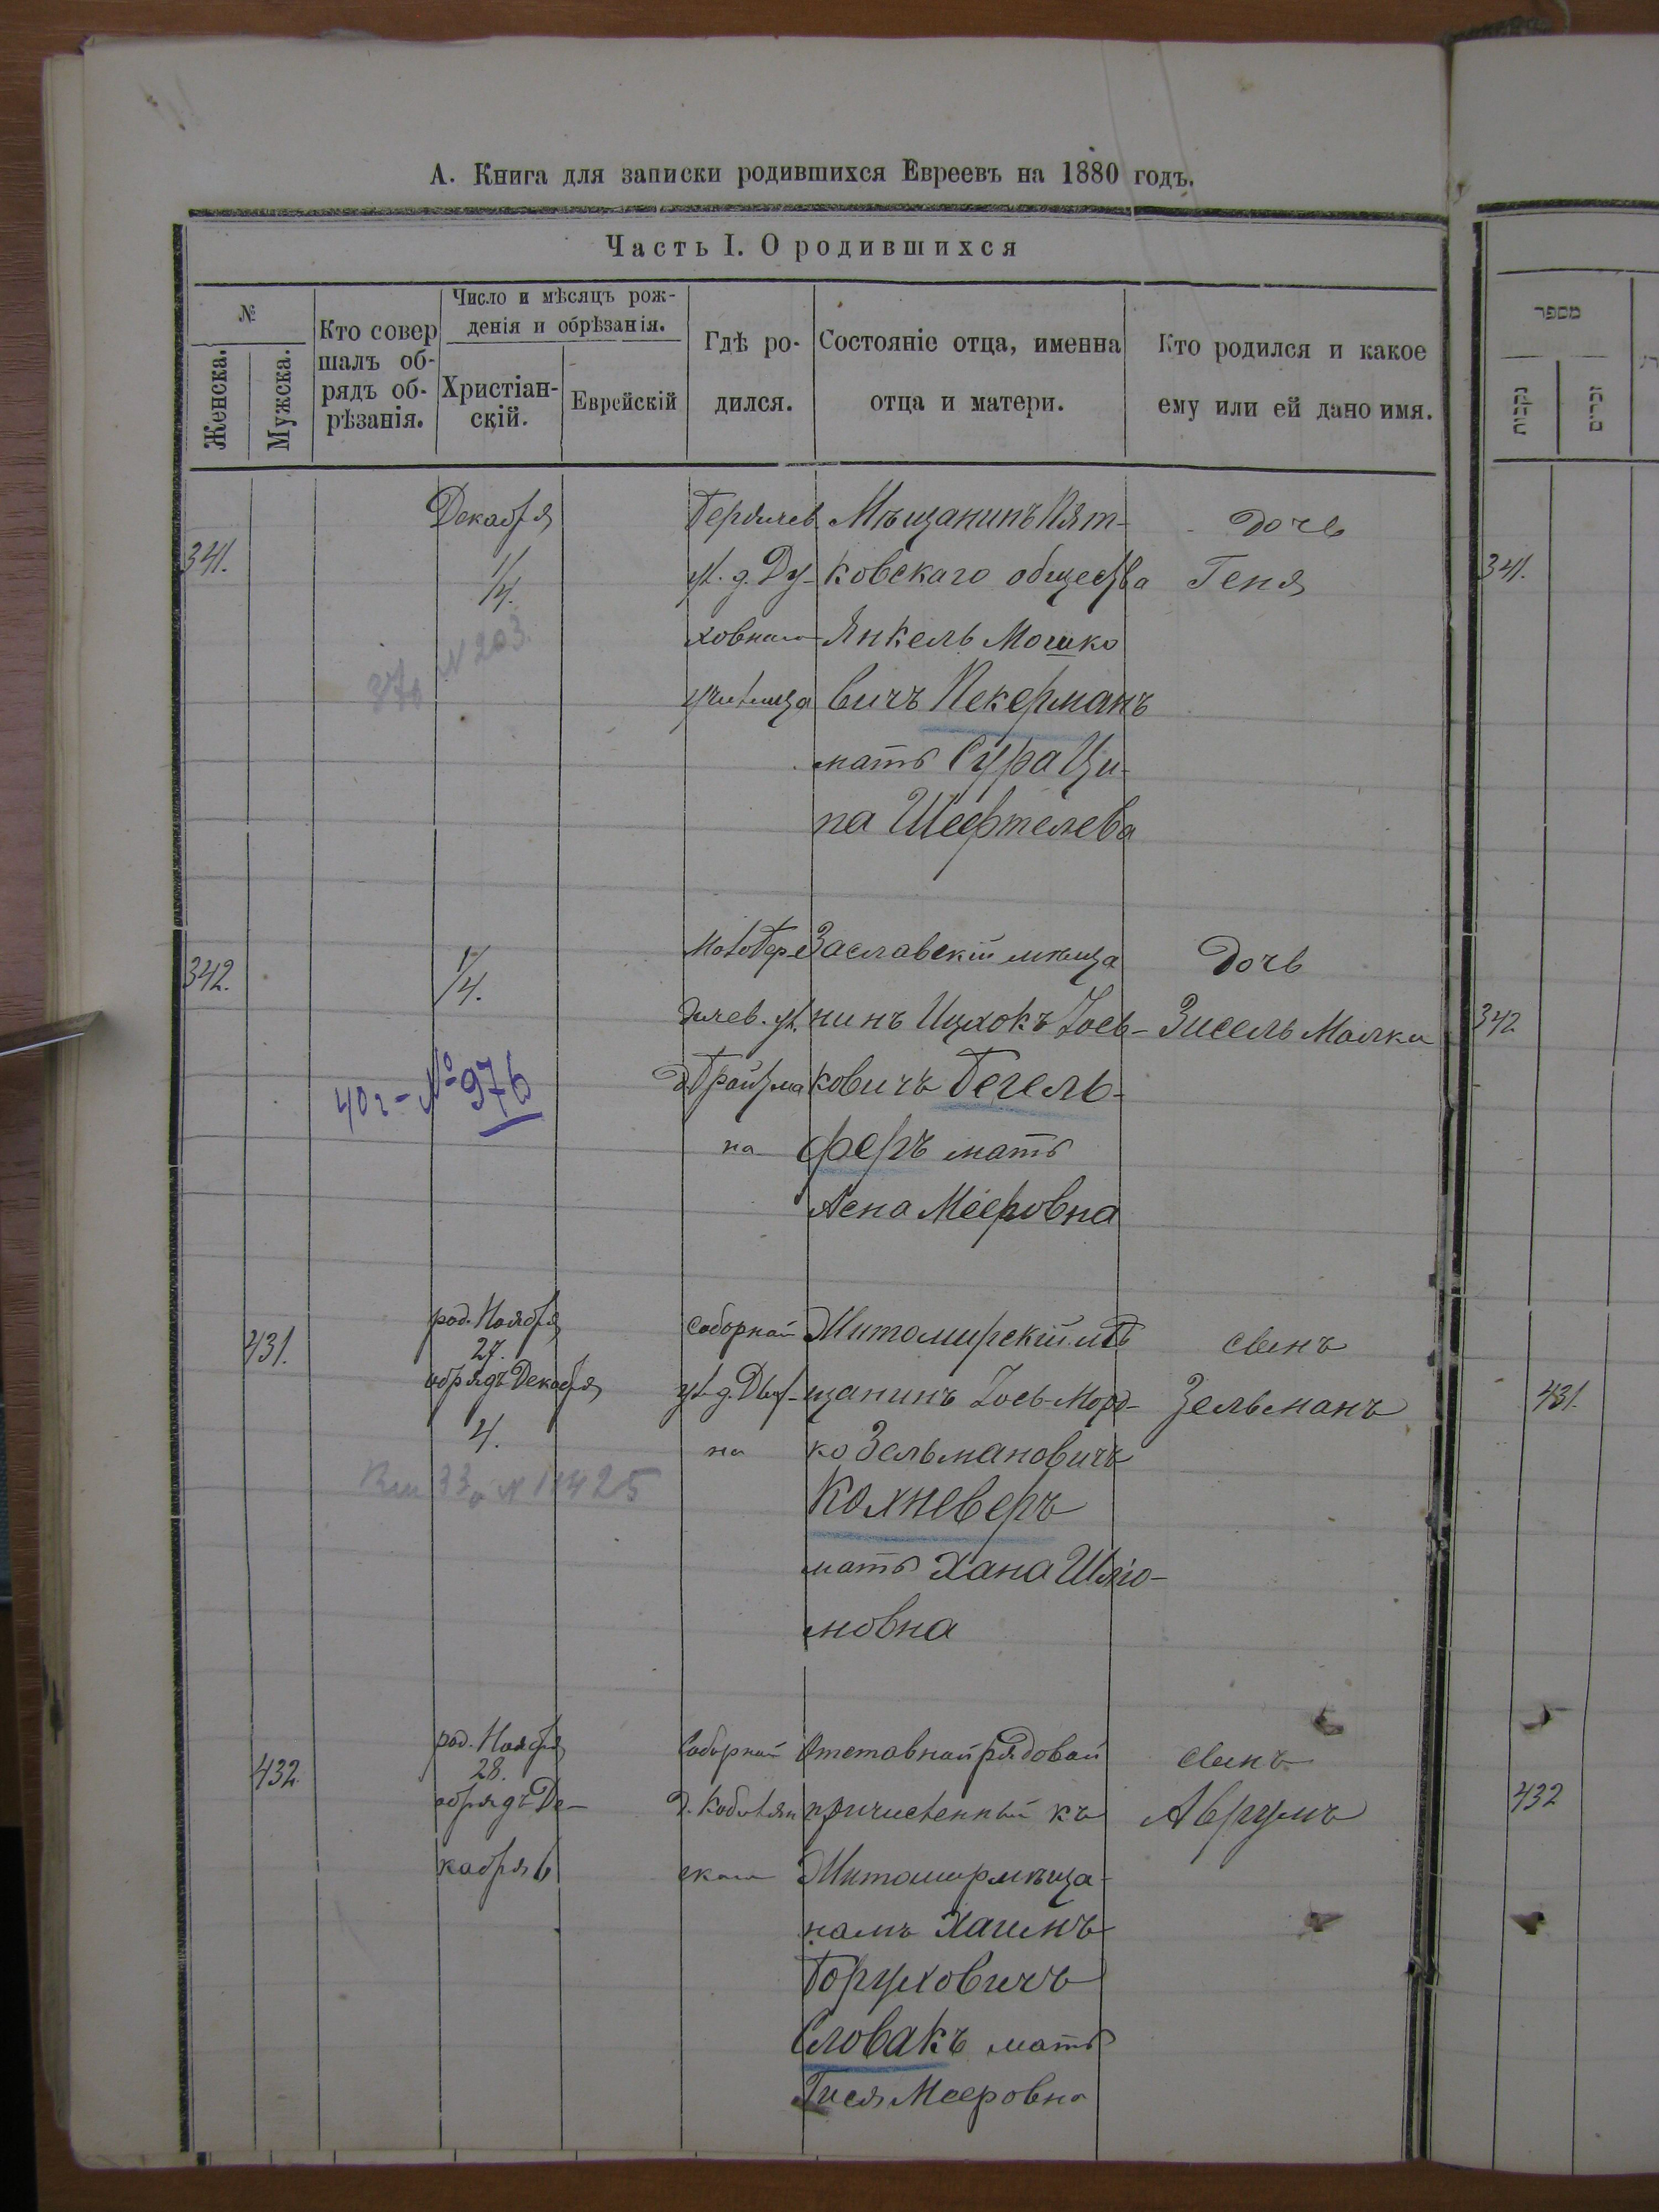 А. Книга для записки родившихся Евреевъ на 1880 годъ.
Часть I. О родившихся
№
Женска.
Мужска.
Кто совер
шалъ об-
рядъ об-
рѣзанія.
Число и мѣсяцъ рож-
денія и обрѣзанія.
Христіан-
скій.
Еврейскій
Гдѣ ро-
дился.
Состояніе отца, именна
отца и матери.
Кто родился и какое
ему или ей дано имя.
מספר
נקבות
זכרים
341.
Декабря
1/4.
Бердичев
ул. д. Ду-
ховнаго
училища
Мѣщанинъ Пят-
ковскаго общества
Янкель Мошко
вичъ Пекерманъ
мать Сура Ци-
па Шефтелева
дочь
Геня
341.
37 № 203.
342.
1/4.
дичев. ул.
д. Бройтма
на
Заславскій мѣща
нинъ Ицхокъ Іось-
ковичъ Бегель-
феръ мать
Асна Мееровна
дочь
Зисель Малка
342
40 г - № 976
431.
род. Ноября
27.
обрядъ Декабря
4.
Соборной
ул. д.
на
Житомирскій мѣ
щанинъ Іось-Морд-
ко Зельмановичъ
Колневеръ
мать Хана Шліо-
мовна
сынъ
Зельманъ
431.
33 № 11425
432
род. Ноября
28.
обрядъ Де-
кабря 6
Соборной
д.
скаго
Отставной рядовой
причисленный къ
Житомир мѣща-
намъ Хаимъ
Боруховичъ
Словакъ мать
Гися Мееровна
сынъ
Аврумъ
432